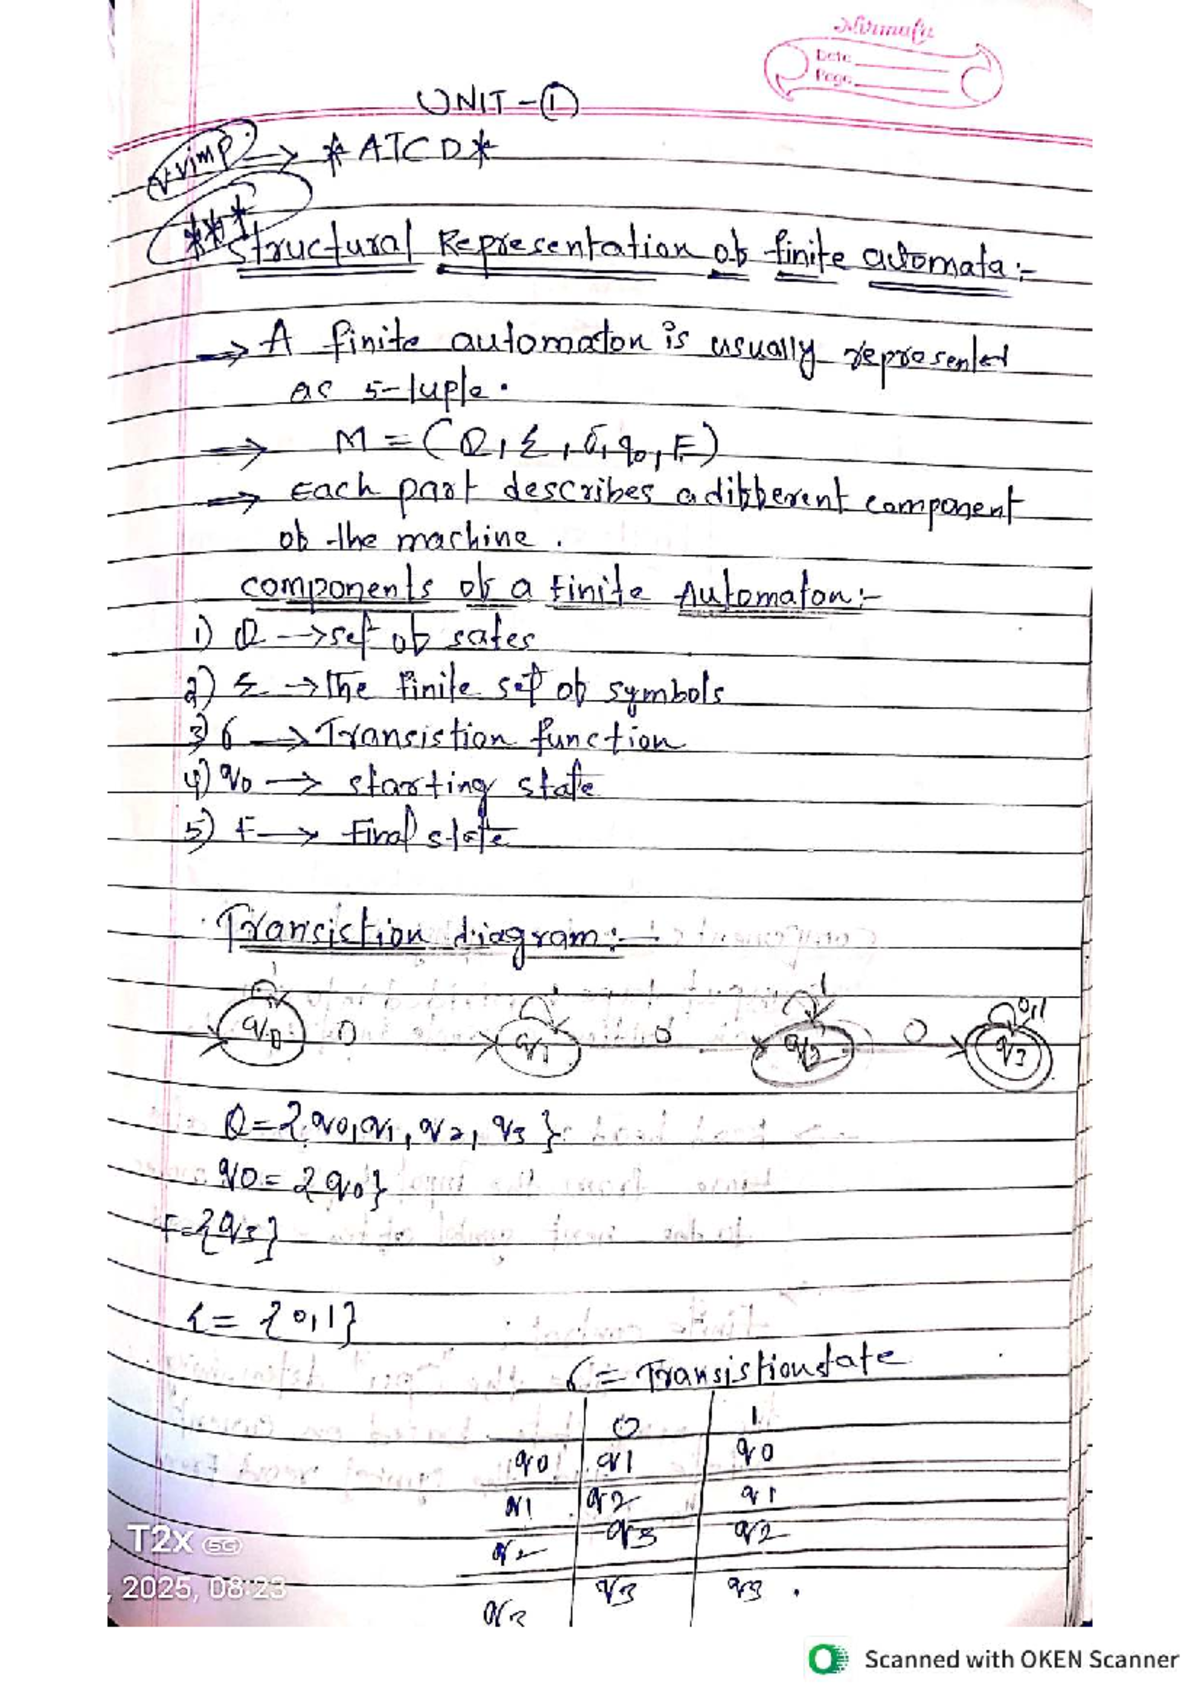 Nirmala
Date
Page
UNIT - ①
vvimp → *ATCD*
***
Structural Representation of finite automata :-
→ A finite automaton is usually represented
as 5-tuple.
⇒ M = (Q, Σ, δ, q0, F)
⇒ Each part describes a different component
of the machine.
components of a Finite Automaton :-
1) Q → set of sates
2) Σ → The finite set of symbols
3) δ → Transistion function
4) q0 → starting state
5) F → Final state
Transiction diagram :-
1 1 1 0,1
q0 0 q1 0 q2 0 q3
Q = {q0, q1, q2, q3}
q0 = {q0}
F = {q3}
Σ = {0, 1}
δ = Transistion state
0 1
q0 q1 q0
q1 q2 q1
q2 q3 q2
q3 q3 q3
T2x 5G
2025, 08:23
Scanned with OKEN Scanner